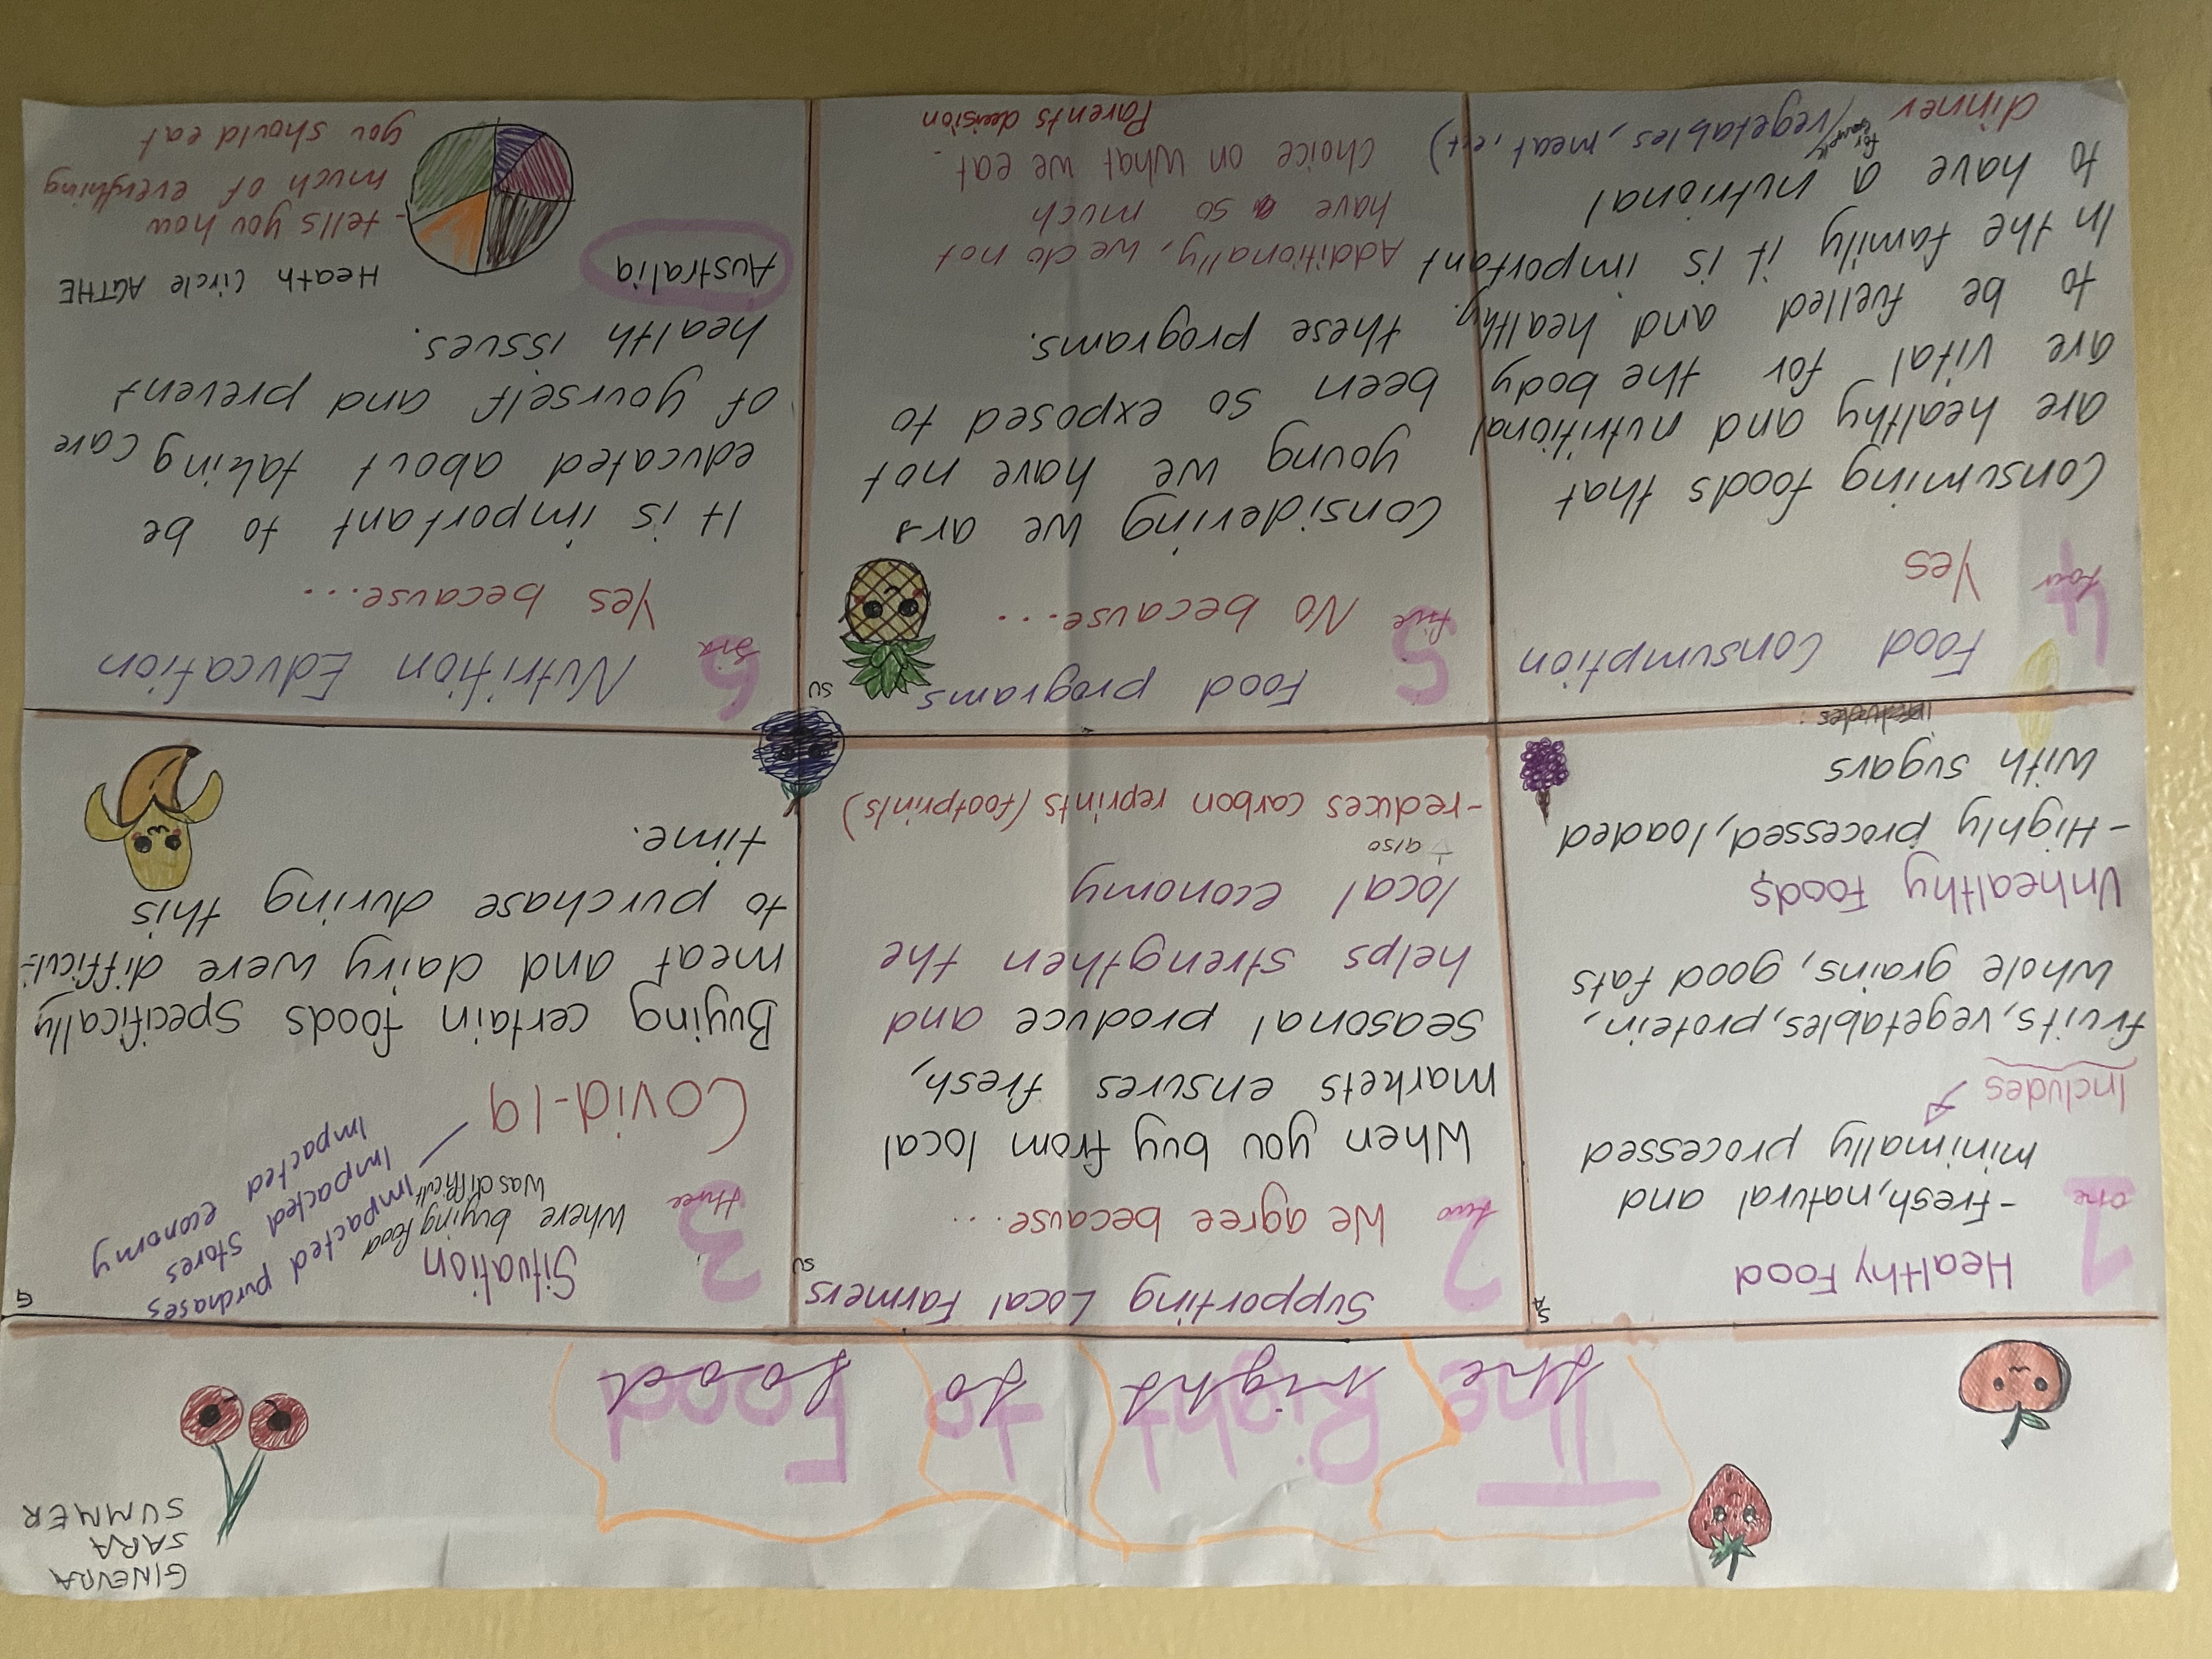 GINEVRA
SARA
SUMMER
The Right to Food
the right to food
1
one
Healthy Food
SA
-fresh, natural and
minimally processed
Includes
fruits, vegetables, protein,
whole grains, good fats
Unhealthy Foods
-Highly processed, loaded
with sugars
includes:
2
two
Supporting Local Farmers
SU
We agree because...
When you buy from local
markets ensures fresh,
seasonal produce and
helps strengthen the
local economy
+ also
-reduces carbon reprints (footprints)
3
three
Situation
G
Where buying food
was difficult
Covid-19
Impacted purchases
Impacted stores
Impacted economy
Buying certain foods specifically
meat and dairy were difficult
to purchase during this
time.
4
four
Food Consumption
Yes
Consuming foods that
are healthy and nutritional
are vital for the body
to be fuelled and healthy.
In the family it is important
to have a nutrional
dinner (vegetables, meat, ect)
for
5
five
Food programs
SU
No because...
Considering we ars
young we have not
been so exposed to
these programs.
Additionally, we do not
have so much
choice on what we eat -
Parents decision
6
six
Nutrition Education
Yes because...
It is important to be
educated about taking care
of yourself and prevent
health issues.
Australia
Heath Circle AGTHE
- tells you how
much of everything
you should eat